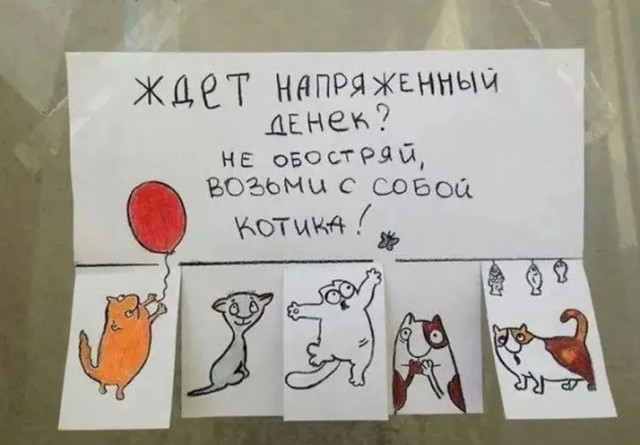 ЖДЕТ НАПРЯЖЕННЫЙ
ДЕНЕК?
НЕ ОБОСТРЯЙ,
ВОЗЬМИ С СОБОЙ
КОТИКА!